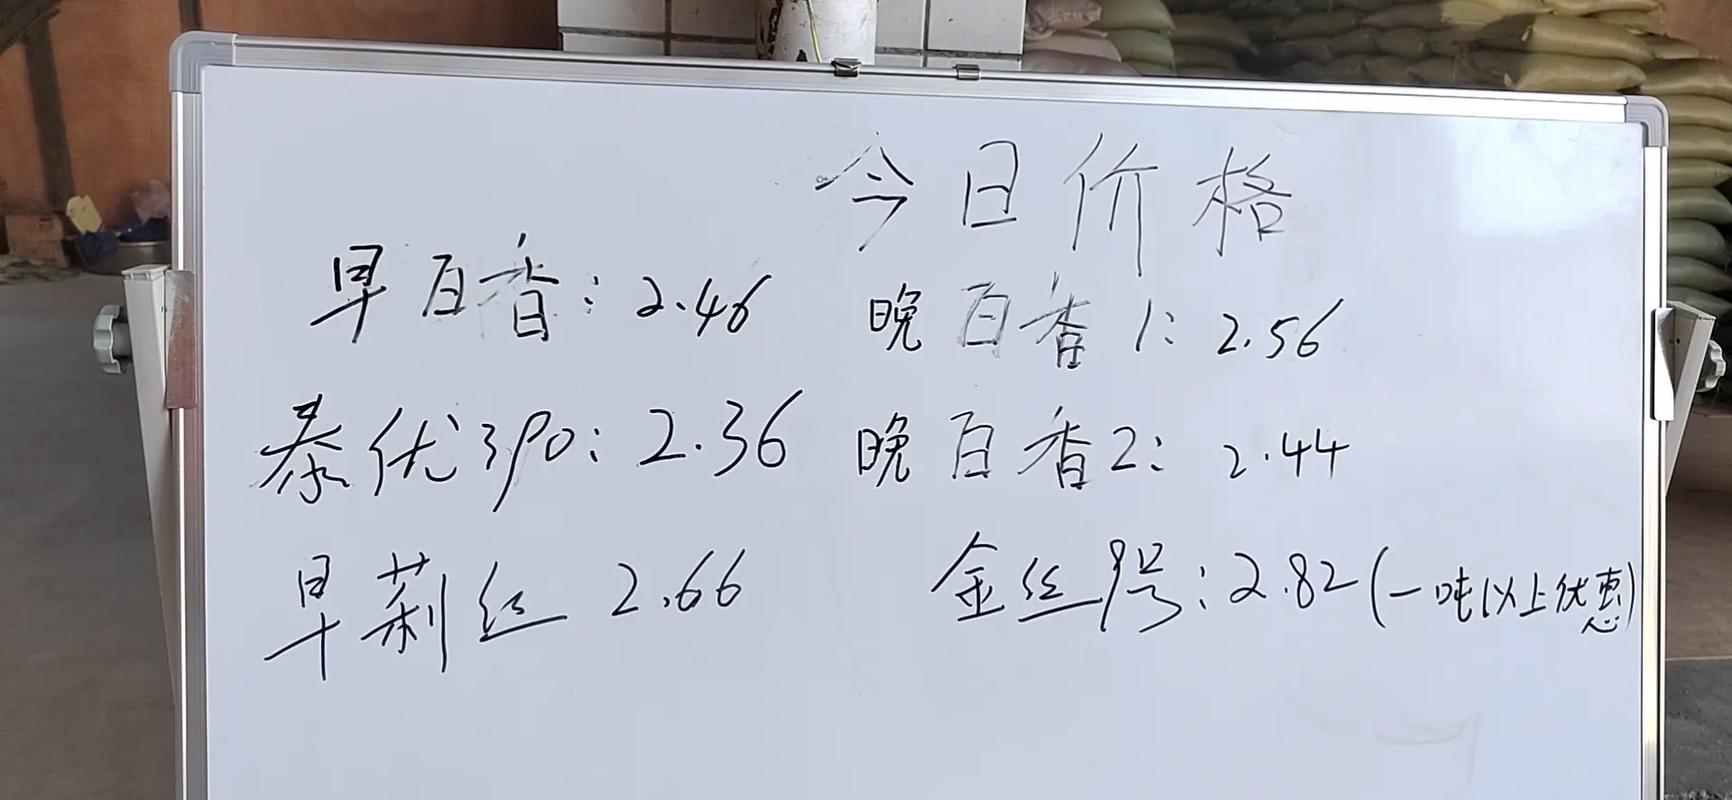 今日价格
早百香：2.46 晚百香1：2.56
泰优390：2.36 晚百香2：2.44
早莉丝 2.66 金丝1号：2.82（一吨以上优惠）